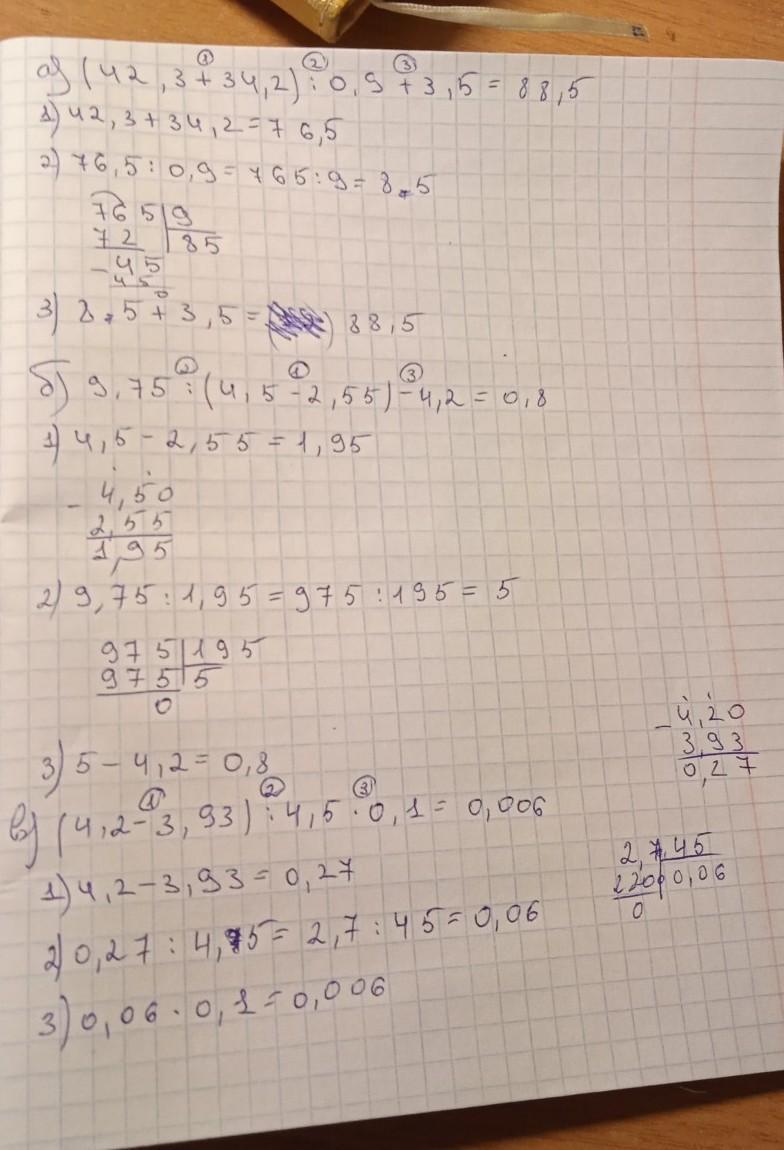 а) (42,3+34,2):0,9+3,5=88,5
1) 42,3+34,2=76,5
2) 76,5:0,9=765:9=85
765 9
72 85
-45
45
0
3) 85+3,5= 88,5
б) 9,75:(4,5-2,55)-4,2=0,8
1) 4,5-2,55=1,95
- 4,50
2,55
1,95
2) 9,75:1,95=975:195=5
975 195
975 5
0
3) 5-4,2=0,8
- 4,20
3,93
0,27
в) (4,2-3,93):4,5·0,1=0,006
1) 4,2-3,93=0,27
2,7 45
0,06
0
2) 0,27:4,5=2,7:45=0,06
3) 0,06·0,1=0,006